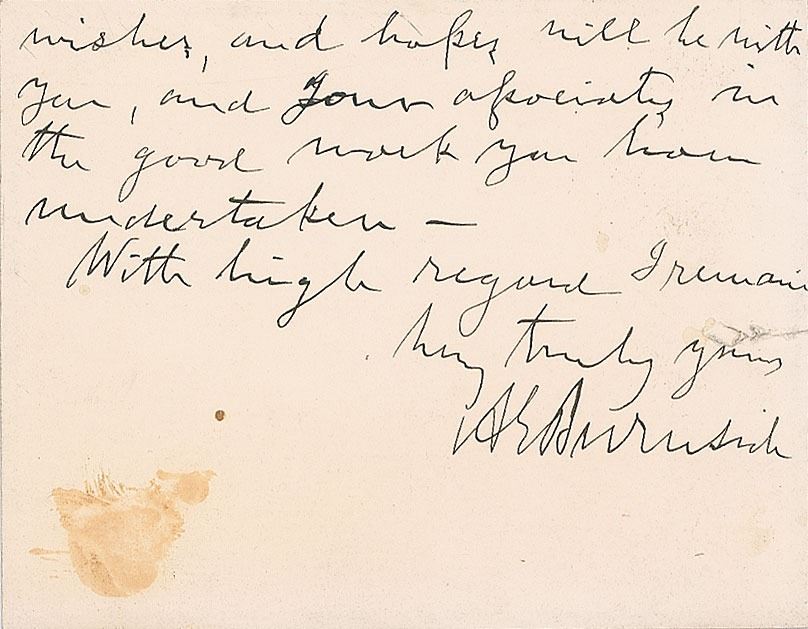 wishes, and hopes will be with
you, and your associates in
the good work you have
undertaken —
With high regard I remain
Very truly yours
A E Burnside